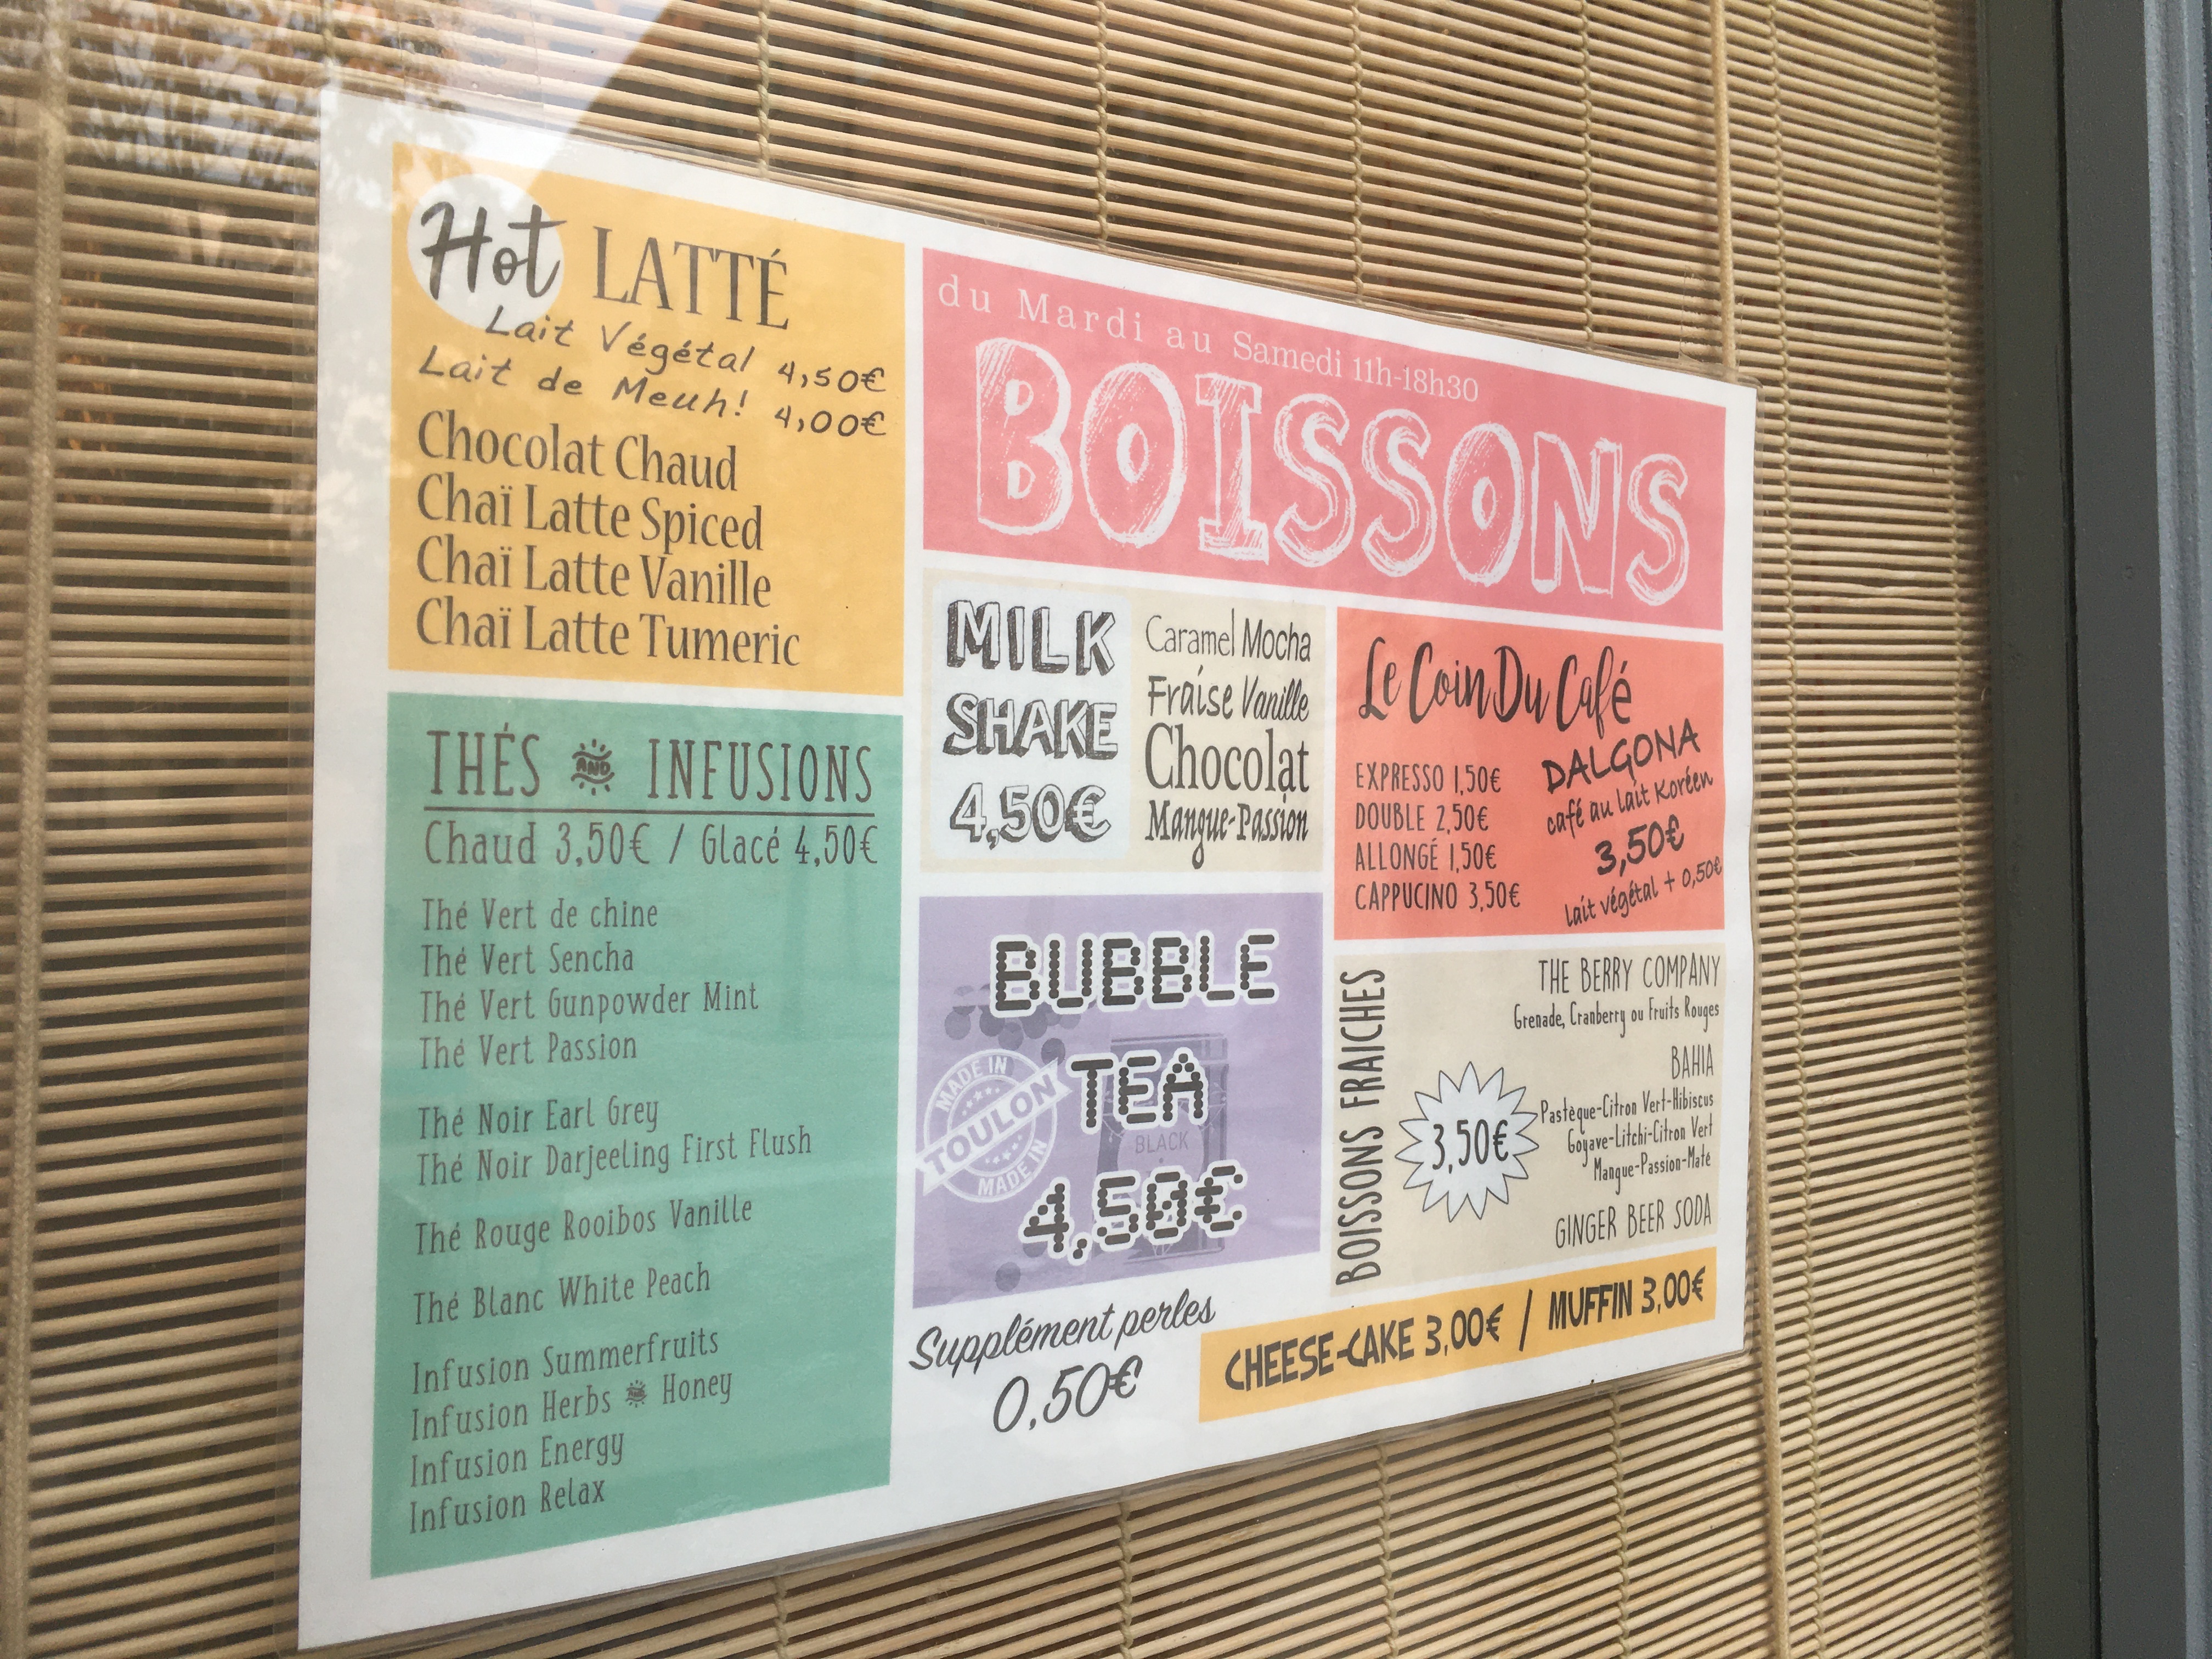 Hot LATTÉ
Lait Végétal 4,50€
Lait de Meuh! 4,00€
Chocolat Chaud
Chaï Latte Spiced
Chaï Latte Vanille
Chaï Latte Tumeric
THÉS AND INFUSIONS
Chaud 3,50€ / Glacé 4,50€
Thé Vert de chine
Thé Vert Sencha
Thé Vert Gunpowder Mint
Thé Vert Passion
Thé Noir Earl Grey
Thé Noir Darjeeling First Flush
Thé Rouge Rooibos Vanille
Thé Blanc White Peach
Infusion Summerfruits
Infusion Herbs AND Honey
Infusion Energy
Infusion Relax
du Mardi au Samedi 11h-18h30
BOISSONS
MILK
SHAKE
4,50€
Caramel Mocha
Fraise Vanille
Chocolat
Mangue-Passion
Le Coin Du Café
EXPRESSO 1,50€
DOUBLE 2,50€
ALLONGÉ 1,50€
CAPPUCINO 3,50€
DALGONA
café au lait Koréen
3,50€
lait végétal + 0,50€
BUBBLE
TEA
4,50€
MADE IN
TOULON
MADE IN
BLACK
Supplément perles
0,50€
BOISSONS FRAICHES
3,50€
THE BERRY COMPANY
Grenade, Cranberry ou Fruits Rouges
BAHIA
Pastèque-Citron Vert-Hibiscus
Goyave-Litchi-Citron Vert
Mangue-Passion-Maté
GINGER BEER SODA
CHEESE-CAKE 3,00€ / MUFFIN 3,00€